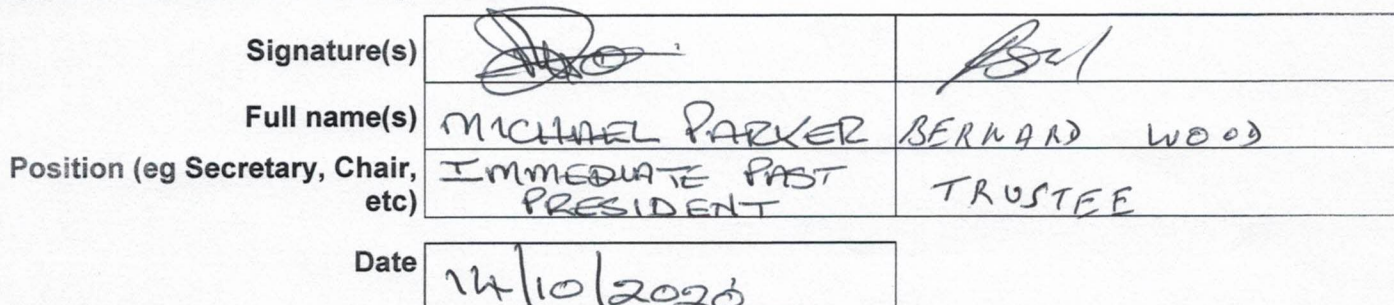 Signature(s)
Full name(s) MICHAEL PARKER BERNARD WOOD
Position (eg Secretary, Chair, etc) IMMEDIATE PAST PRESIDENT TRUSTEE
Date 14/10/2020